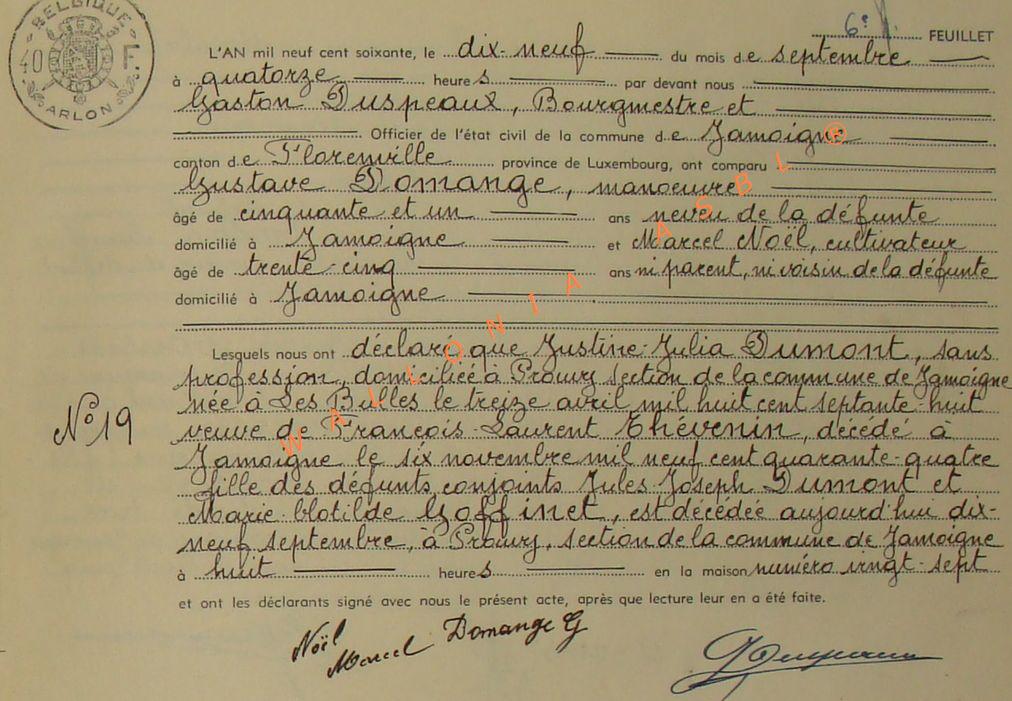 BELGIQUE
40 F.
ARLON
6e FEUILLET
L'AN mil neuf cent soixante, le dix-neuf du mois de septembre
à quatorze heures par devant nous
Gaston Duspeaux, Bourgmestre et
Officier de l'état civil de la commune de Jamoigne
canton de Florenville province de Luxembourg, ont comparu
Gustave Domange, manoeuvre
âgé de cinquante et un ans neveu de la défunte
domicilié à Jamoigne et Marcel Noël, cultivateur
âgé de trente-cinq ans ni parent, ni voisin de la défunte
domicilié à Jamoigne
Lesquels nous ont déclaré que Justine-Julia Dumont, sans
profession, domiciliée à Prouvy section de la commune de Jamoigne
née à Les Bulles le treize avril mil huit cent septante-huit
N° 19
veuve de François-Laurent Thévenin, décédé à
Jamoigne le six novembre mil neuf cent quarante-quatre
fille des défunts conjoints Jules-Joseph Dumont et
Marie-Clotilde Goffinet, est décédée aujourd'hui dix-
neuf septembre, à Prouvy, section de la commune de Jamoigne
à huit heures en la maison numéro vingt-sept
et ont les déclarants signé avec nous le présent acte, après que lecture leur en a été faite.
Noël Marcel
Domange G
WALLONIA ASBL ®